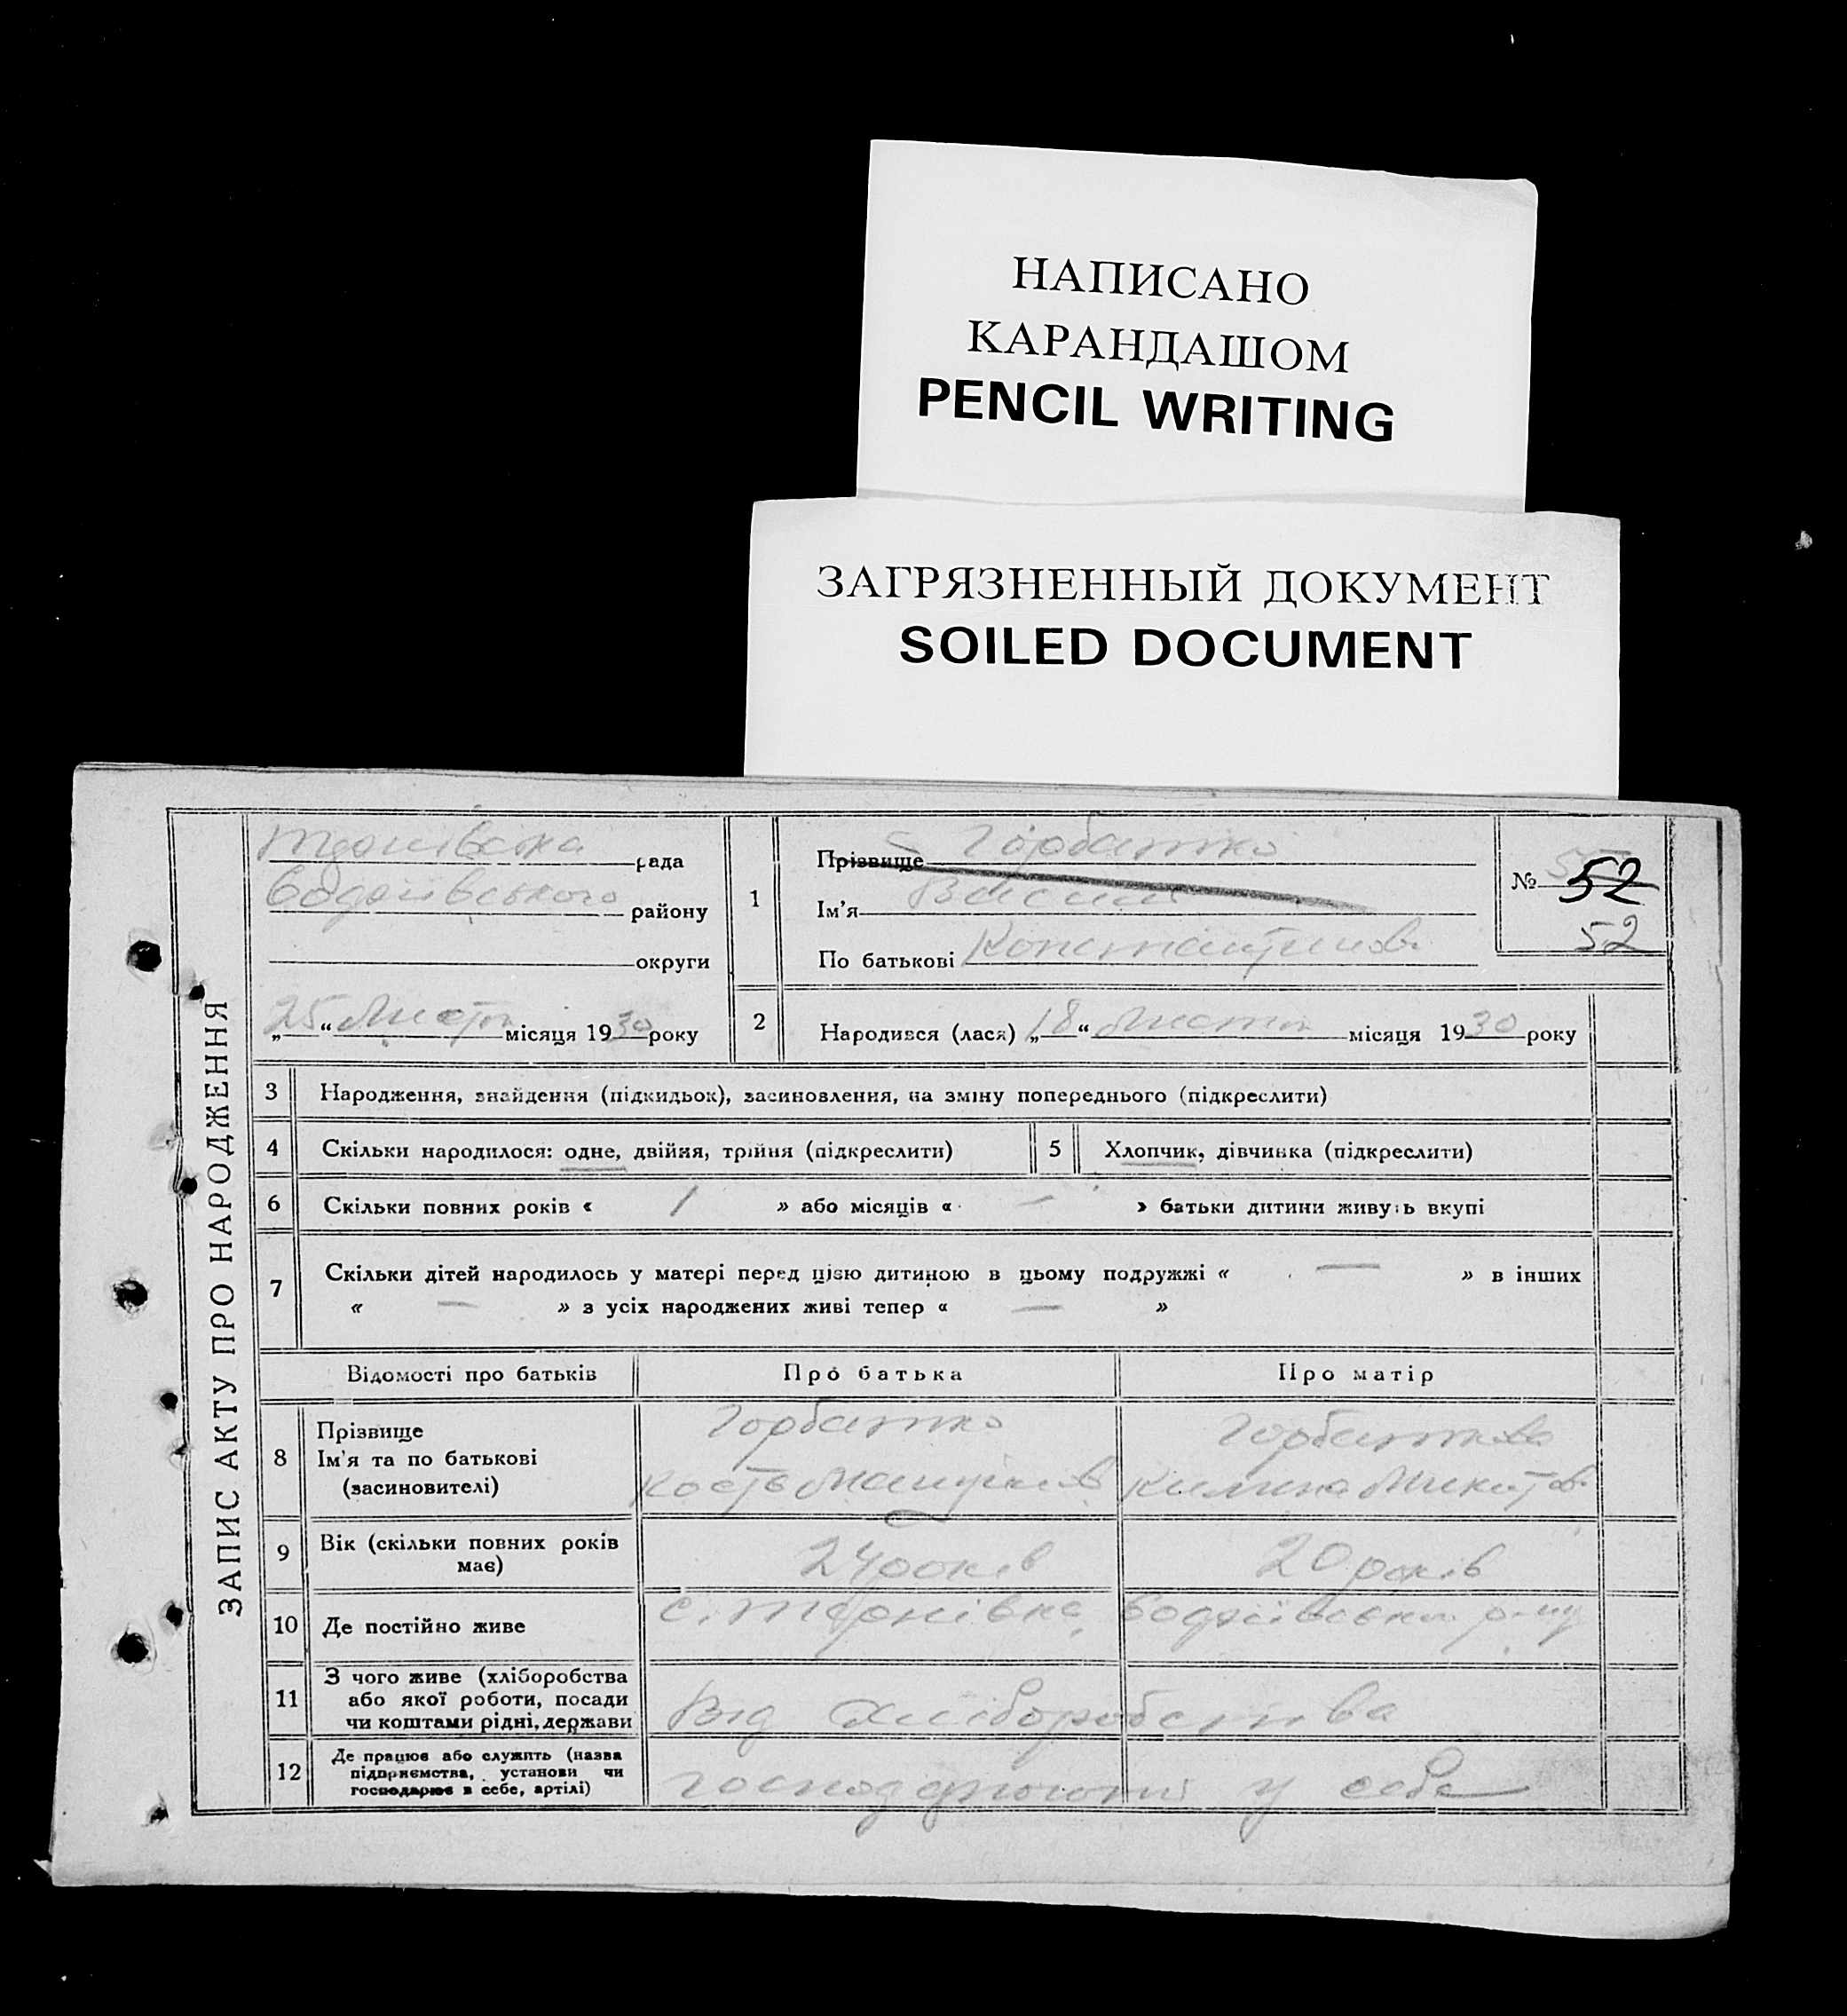 НАПИСАНО
КАРАНДАШОМ
PENCIL WRITING
ЗАГРЯЗНЕННЫЙ ДОКУМЕНТ
SOILED DOCUMENT
ЗАПИС АКТУ ПРО НАРОДЖЕННЯ
Тернівська рада
району
округи
„25“ Листоп місяця 1930 року
1
Прізвище Горбатко
Ім'я Васил
По батькові Константинов.
№ 52
52
2 Народився (лася) „18“ Листоп місяця 1930 року
3 Народження, знайдення (підкидьок), засиновлення, на зміну попереднього (підкреслити)
4 Скільки народилося: одне, двійня, трійня (підкреслити)
5 Хлопчик, дівчинка (підкреслити)
6 Скільки повних років « 1 » або місяців « — » батьки дитини живуть вкупі
7 Скільки дітей народилось у матері перед цією дитиною в цьому подружжі « — » в інших
« — » з усіх народжених живі тепер « — »
Відомості про батьків Про батька Про матір
8 Прізвище
Ім'я та по батькові
(засиновителі)
Горбатко
Кость
Горбаткова
Килина Микитов.
9 Вік (скільки повних років
має)
24 років 20 років
10 Де постійно живе с. Тернівка р-ну
11 З чого живе (хліборобства
або якої роботи, посади
чи коштами рідні, держави
Від Хліборобства
12 Де працює або служить (назва
підприємства, установи чи
господарює в себе, артілі)
господарюють у себе